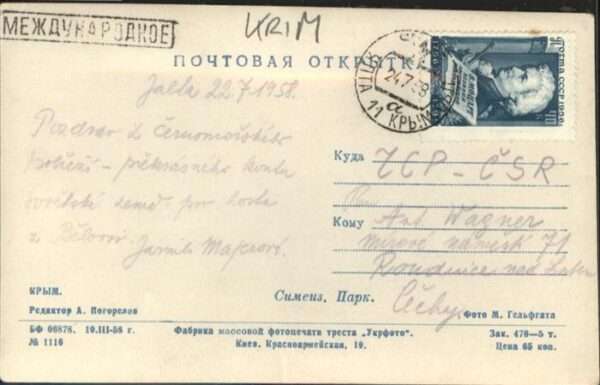 МЕЖДУНАРОДНОЕ
KRIM
ПОЧТОВАЯ ОТКРЫТК
ПОЧТА СССР
ЯЛТА
24.7.58
а
11 КРЫМ
Jalta 22.7.1958.
Pozdrav z černomořského
pobřeží – překrásného koutu
sovětské země
z
Куда ЧСР – ČSR
Кому Ant. Wagner
mírové náměstí 71
Roudnice nad Lab
Čechy
КРЫМ.
Симеиз. Парк.
Редактор А. Погорелов
Фото М. Гельфгата
БФ 06876. 10.III-58 г.
Фабрика массовой фотопечати треста „Укрфото“.
Зак. 476—5 т.
№ 1116
Киев. Красноармейская, 19.
Цена 65 коп.